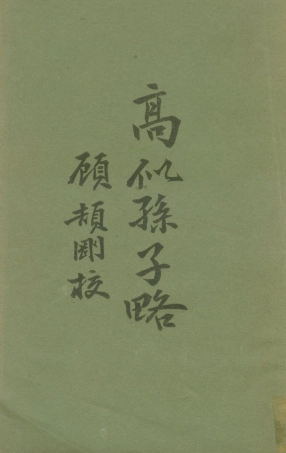 高似孫子略
顧頡剛校